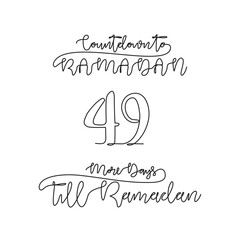 Countdown to
RAMADAN
49
More Days
till Ramadan